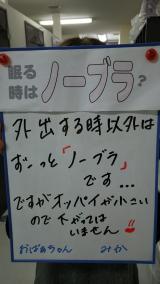 眠る
時は ノーブラ?
外出する時以外は
ずーっと「ノーブラ」
です...
ですがオッパイが小さい
ので下がっては
いません!!
おばあちゃん みか